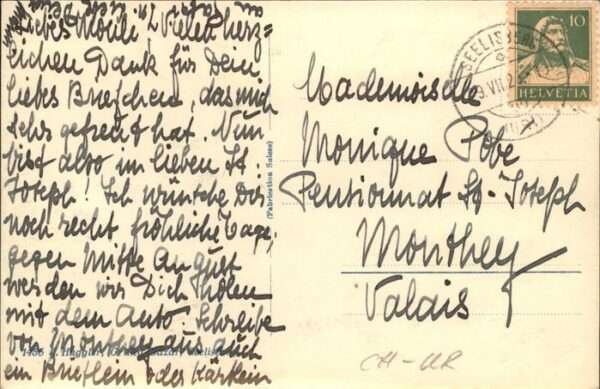 Liebes Mouli! Vielen herz=
lichen Dank für Dein
liebes Briefchen, das mich
sehr gefreut hat. Nun
bist also im lieben St
Joseph! Ich wünsche Dir
noch recht fröhliche Tage,
gegen Mitte August
werden wir Dich holen
mit dem Auto. Schreibe
von Monthey aus auch
ein Brieflein oder Kärtlein
(Fabrication Suisse)
SEELISBERG
10
HELVETIA
Mademoiselle
Monique Pobé
Pensionnat St-Joseph
Monthey
Valais
CH-UR